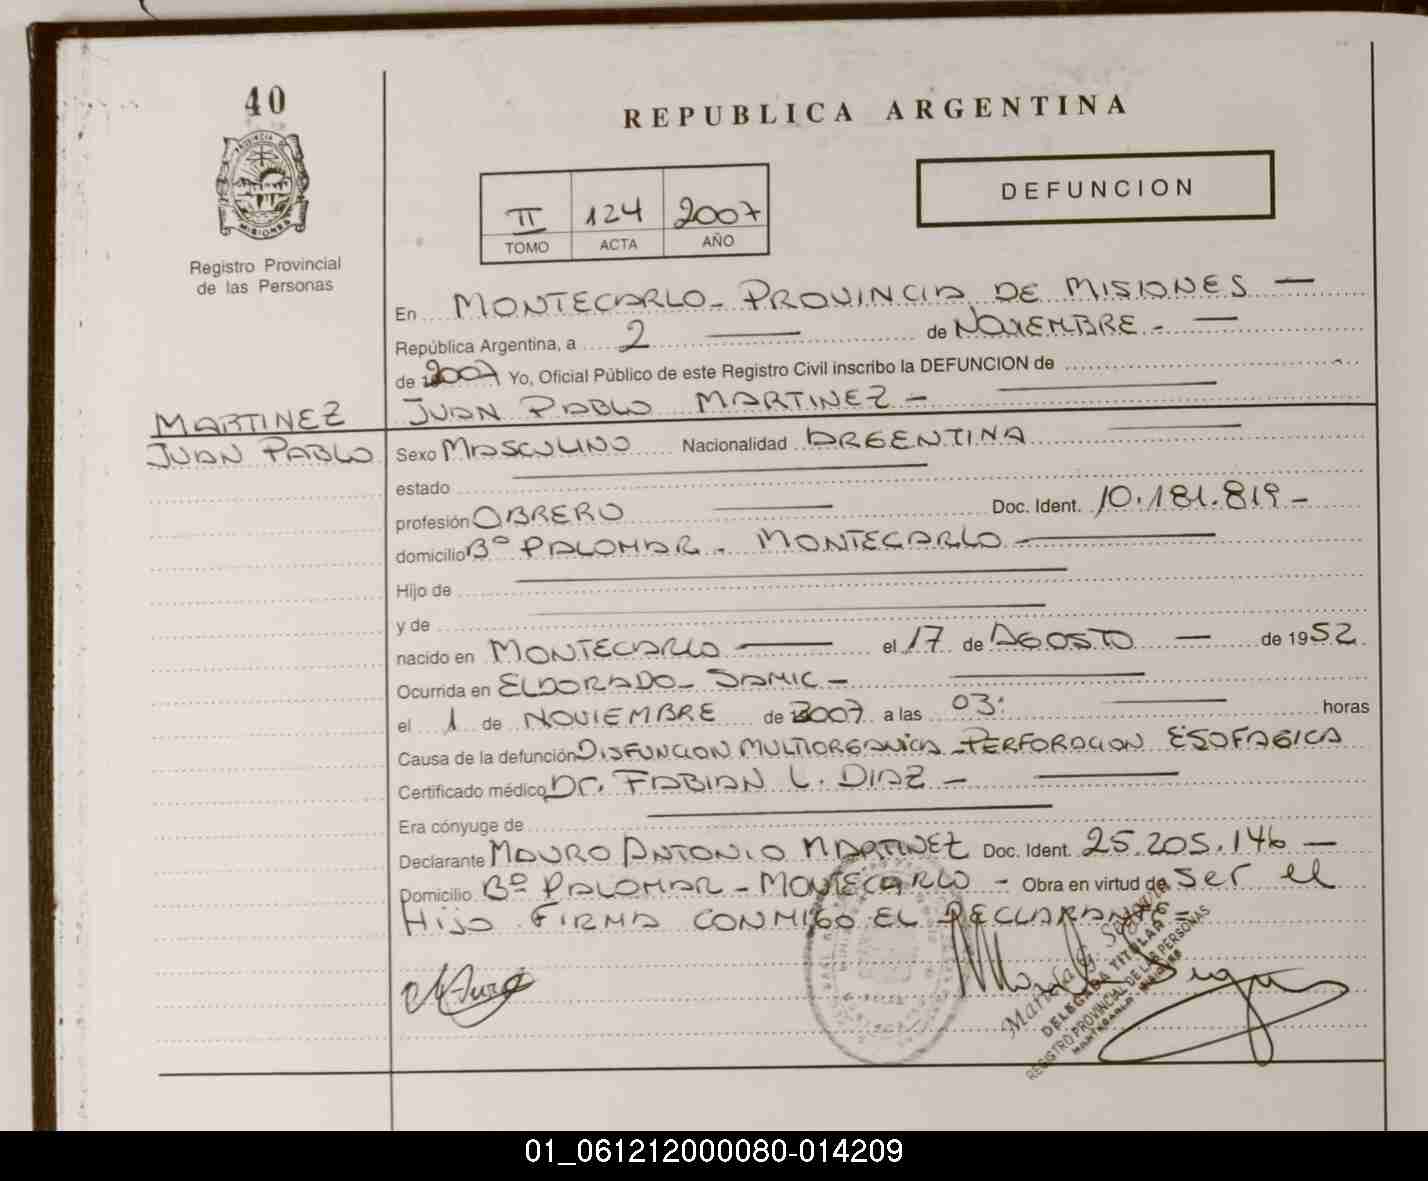 40
PROVINCIA DE
MISIONES
Registro Provincial
de las Personas
REPUBLICA ARGENTINA
DEFUNCION
II 124 2007
TOMO ACTA AÑO
En MONTECARLO - PROVINCIA DE MISIONES —
República Argentina, a 2 — de NOVIEMBRE . —
de 2007 Yo, Oficial Público de este Registro Civil inscribo la DEFUNCION de
MARTINEZ
JUAN PABLO
JUAN PABLO MARTINEZ —
Sexo MASCULINO Nacionalidad ARGENTINA —
estado —
profesión OBRERO — Doc. Ident. 10.181.819 -
domicilio Bº PALOMAR . MONTECARLO —
Hijo de —
y de —
nacido en MONTECARLO — el 17 de AGOSTO — de 1952
Ocurrida en ELDORADO - SAMIC — —
el 1 de NOVIEMBRE de 2007 a las 03: — horas
Causa de la defunción DISFUNCION MULTIORGANICA - PERFORACION ESOFAGICA
Certificado médico Dr. FABIAN L. DIAZ — —
Era cónyuge de —
Declarante MAURO ANTONIO MARTINEZ Doc. Ident. 25.205.146 —
Domicilio Bº PALOMAR - MONTECARLO - Obra en virtud de ser el
HIJO FIRMA CONMIGO EL DECLARANTE =
DELEGADA TITULAR
REGISTRO PROVINCIAL DE LAS PERSONAS
MONTECARLO - MISIONES
01_061212000080-014209